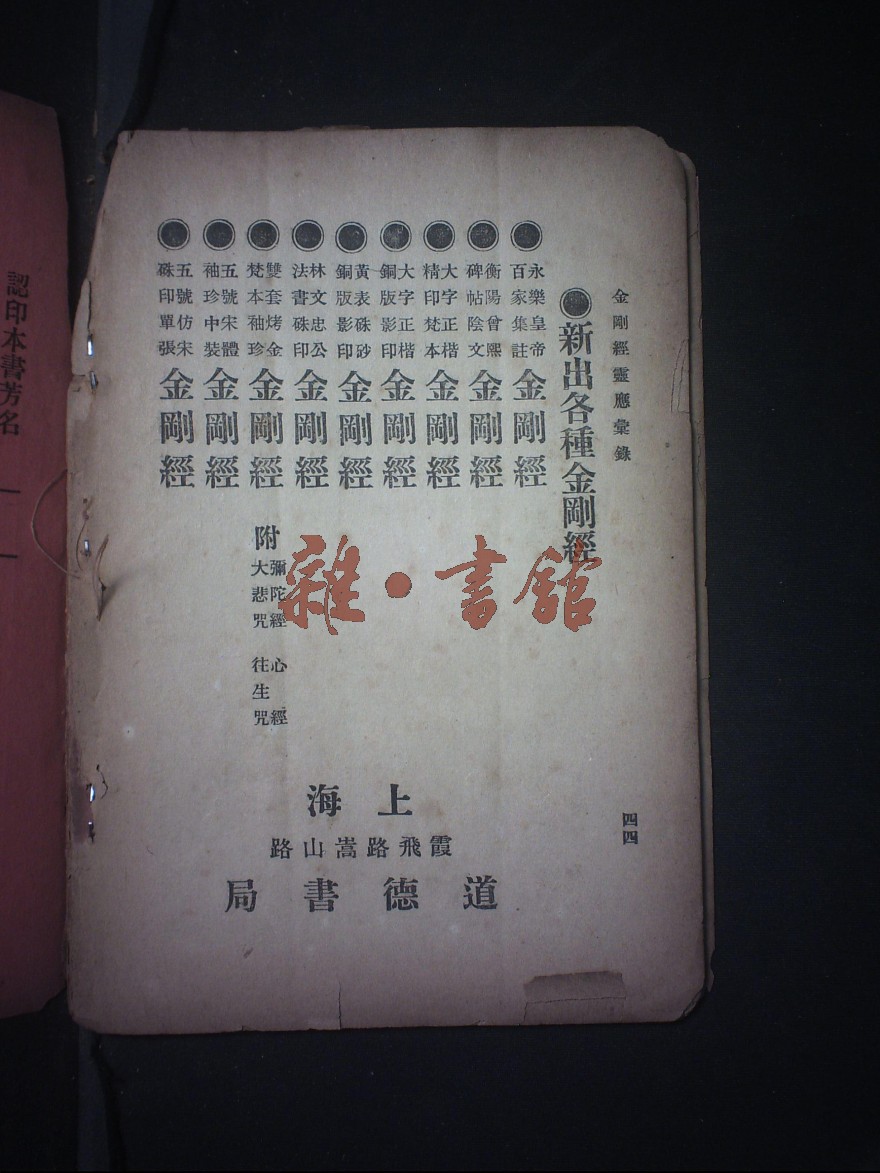 金剛經靈應彙錄
四四
新出各種金剛經
永樂皇帝百家集註金剛經
衡陽曾熙碑帖陰文金剛經
大字正楷精印梵本金剛經
大字正楷銅版影印金剛經
黃表硃砂銅版影印金剛經
林文忠公法書硃印金剛經
雙套烤金梵本袖珍金剛經
附
彌陀經 心經
大悲咒 往生咒
五號宋體袖珍中裝金剛經
五號仿宋硃印單張金剛經
上海
霞飛路嵩山路
道德書局
認印本書芳名
雜·書館